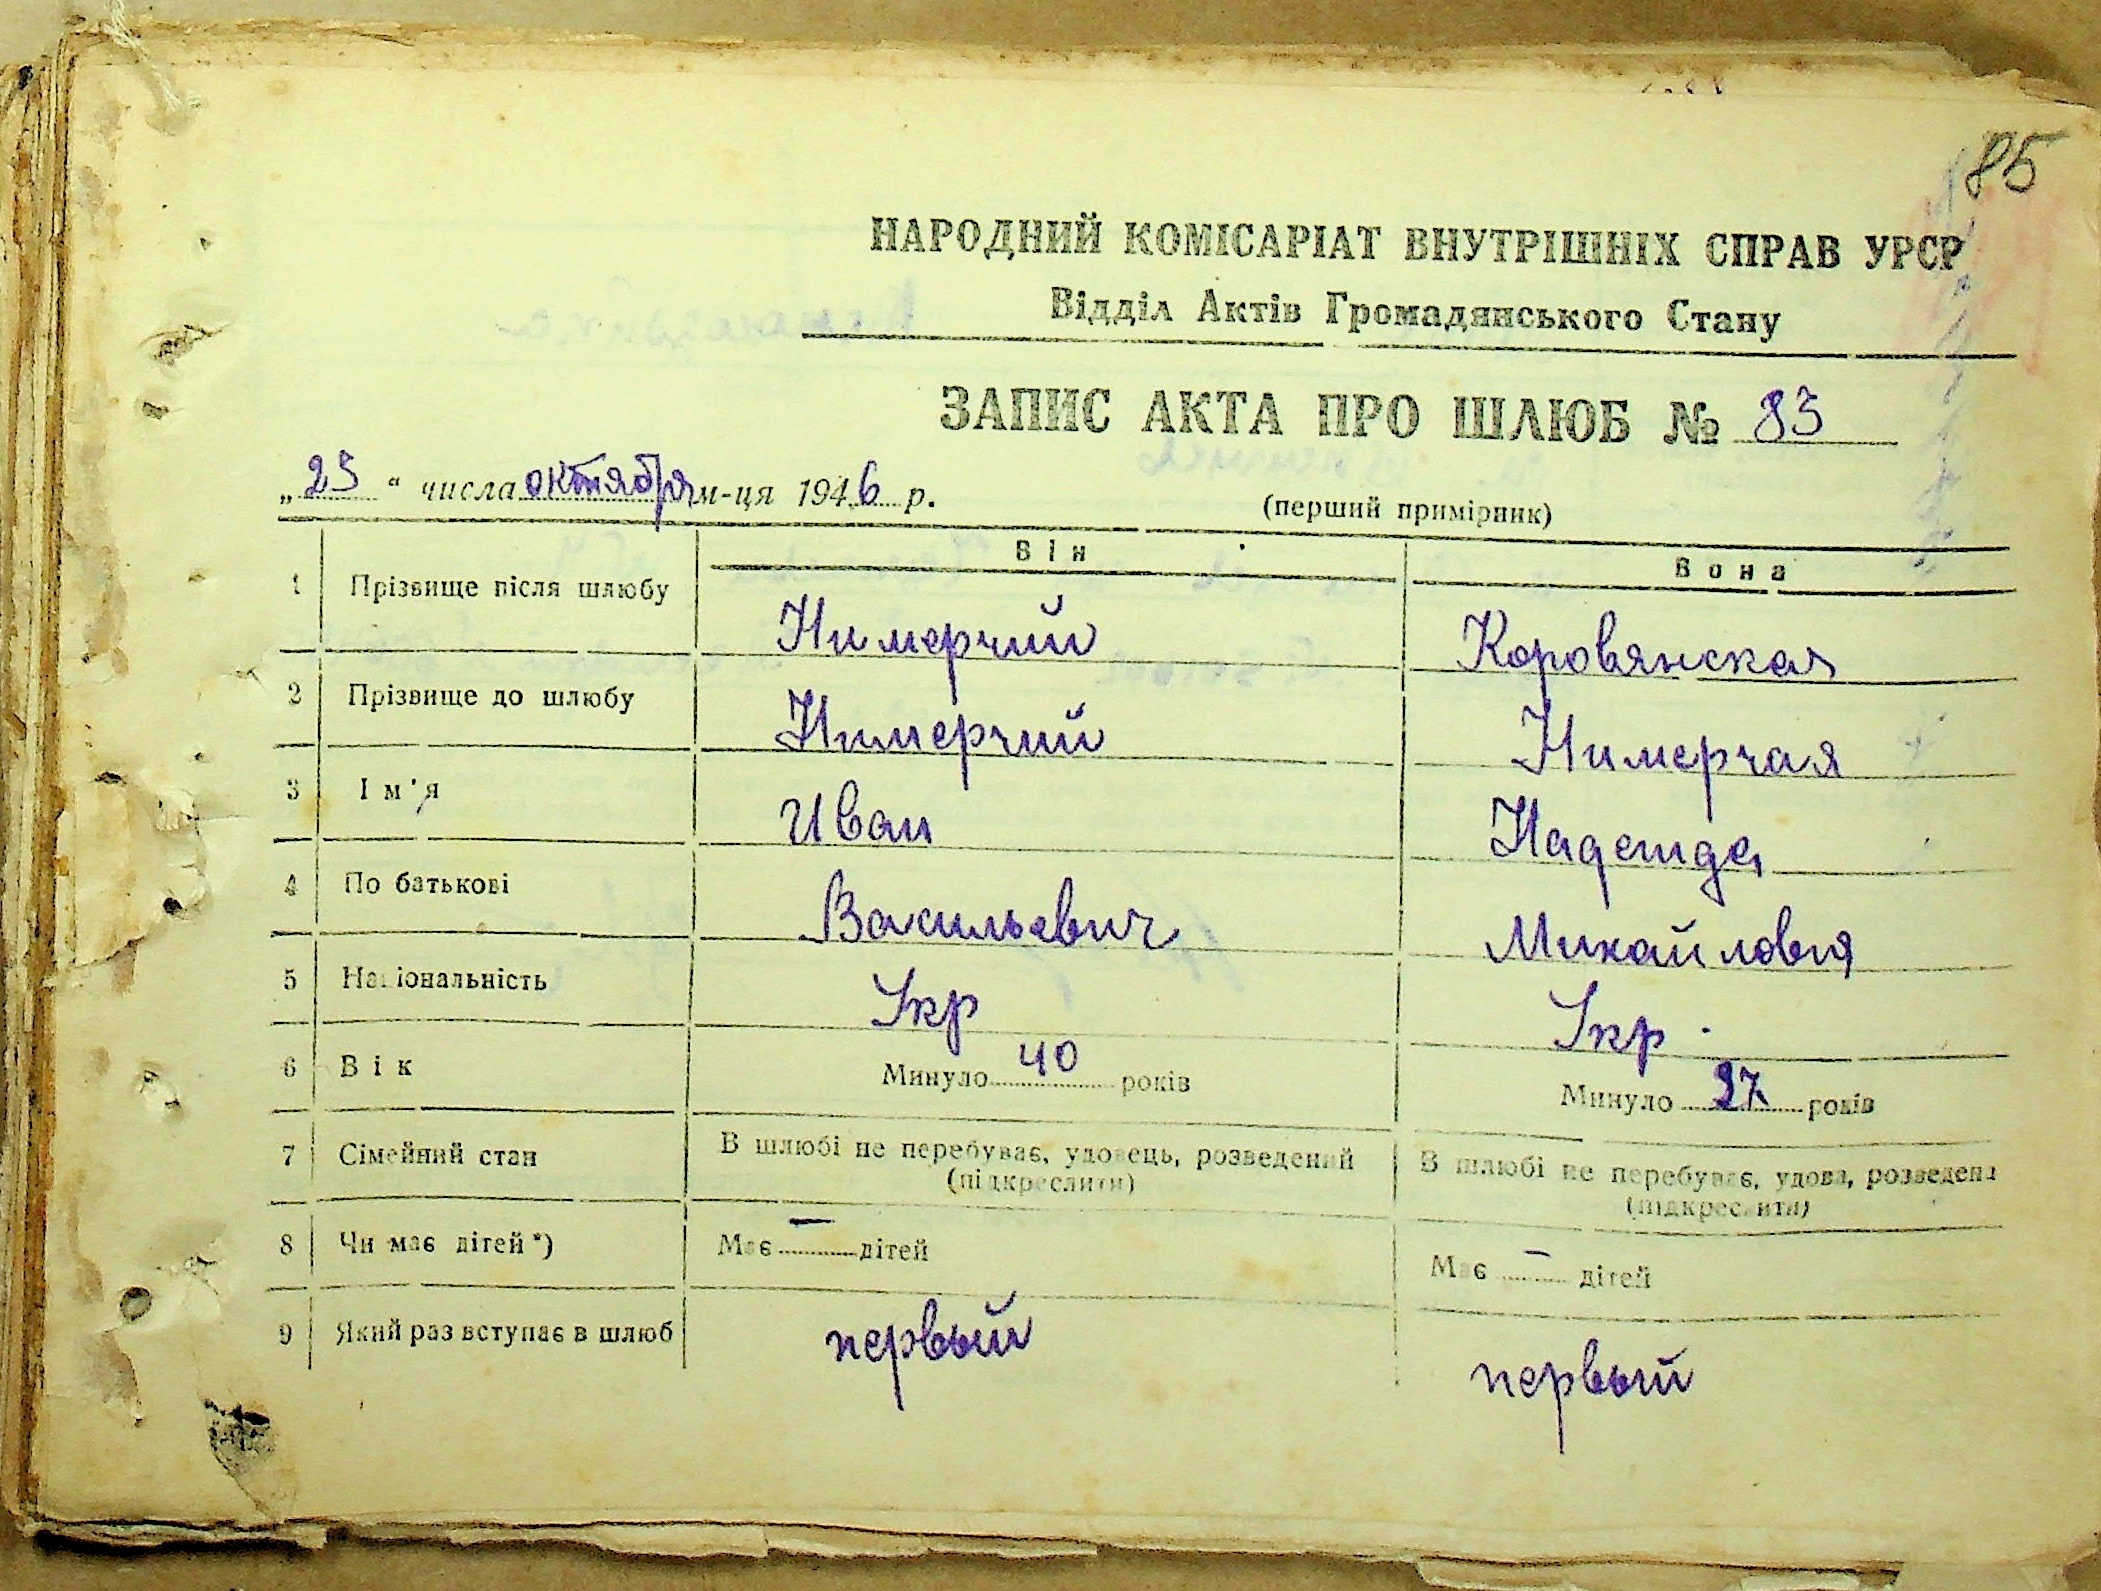 85
НАРОДНИЙ КОМІСАРІАТ ВНУТРІШНІХ СПРАВ УРСР
Відділ Актів Громадянського Стану
ЗАПИС АКТА ПРО ШЛЮБ № 83
„25“ числа октября м-ця 1946 р.
(перший примірник)
Він Вона
1 Прізвище після шлюбу Нимерчий Коровянская
2 Прізвище до шлюбу Нимерчий Нимерчая
3 Ім'я Иван Надежда
4 По батькові Васильевич Михайловна
5 Національність Укр Укр.
6 Вік Минуло 40 років Минуло 27 років
7 Сімейний стан В шлюбі не перебуває, удовець, розведений (підкреслити) В шлюбі не перебуває, удова, розведена (підкреслити)
8 Чи має дітей*) Має — дітей Має — дітей
9 Який раз вступає в шлюб первый первый